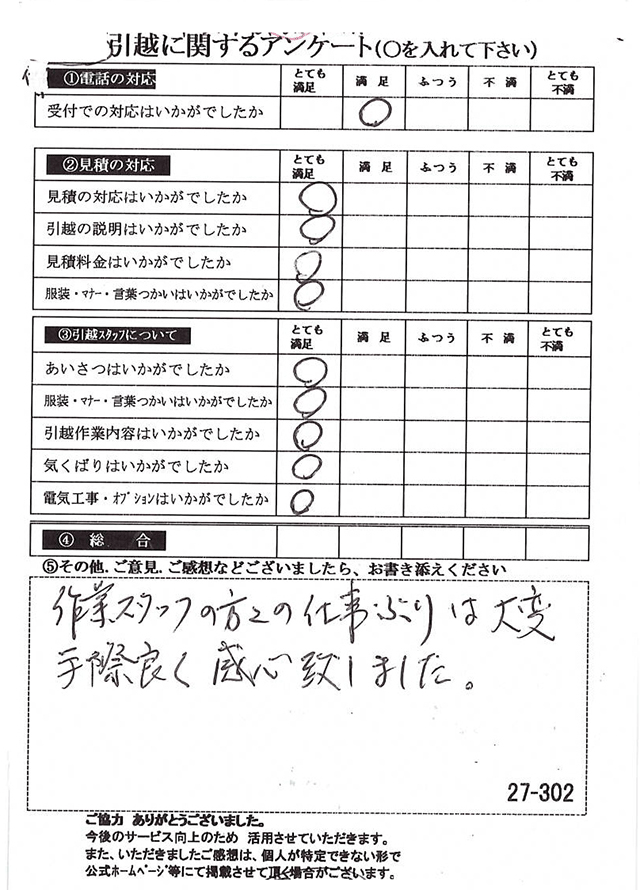 引越に関するアンケート(〇を入れて下さい)
①電話の対応 とても満足 満足 ふつう 不満 とても不満
受付での対応はいかがでしたか
②見積の対応 とても満足 満足 ふつう 不満 とても不満
見積の対応はいかがでしたか
引越の説明はいかがでしたか
見積料金はいかがでしたか
服装・マナー・言葉つかいはいかがでしたか
③引越スタッフについて とても満足 満足 ふつう 不満 とても不満
あいさつはいかがでしたか
服装・マナー・言葉つかいはいかがでしたか
引越作業内容はいかがでしたか
気くばりはいかがでしたか
電気工事・オプションはいかがでしたか
④ 総 合
⑤その他.ご意見.ご感想などございましたら、お書き添えください
作業スタッフの方々の仕事ぶりは大変
手際良く感心致しました。
27-302
ご協力 ありがとうございました。
今後のサービス向上のため 活用させていただきます。
また、いただきましたご感想は、個人が特定できない形で
公式ホームページ等にて掲載させて頂く場合がございます。